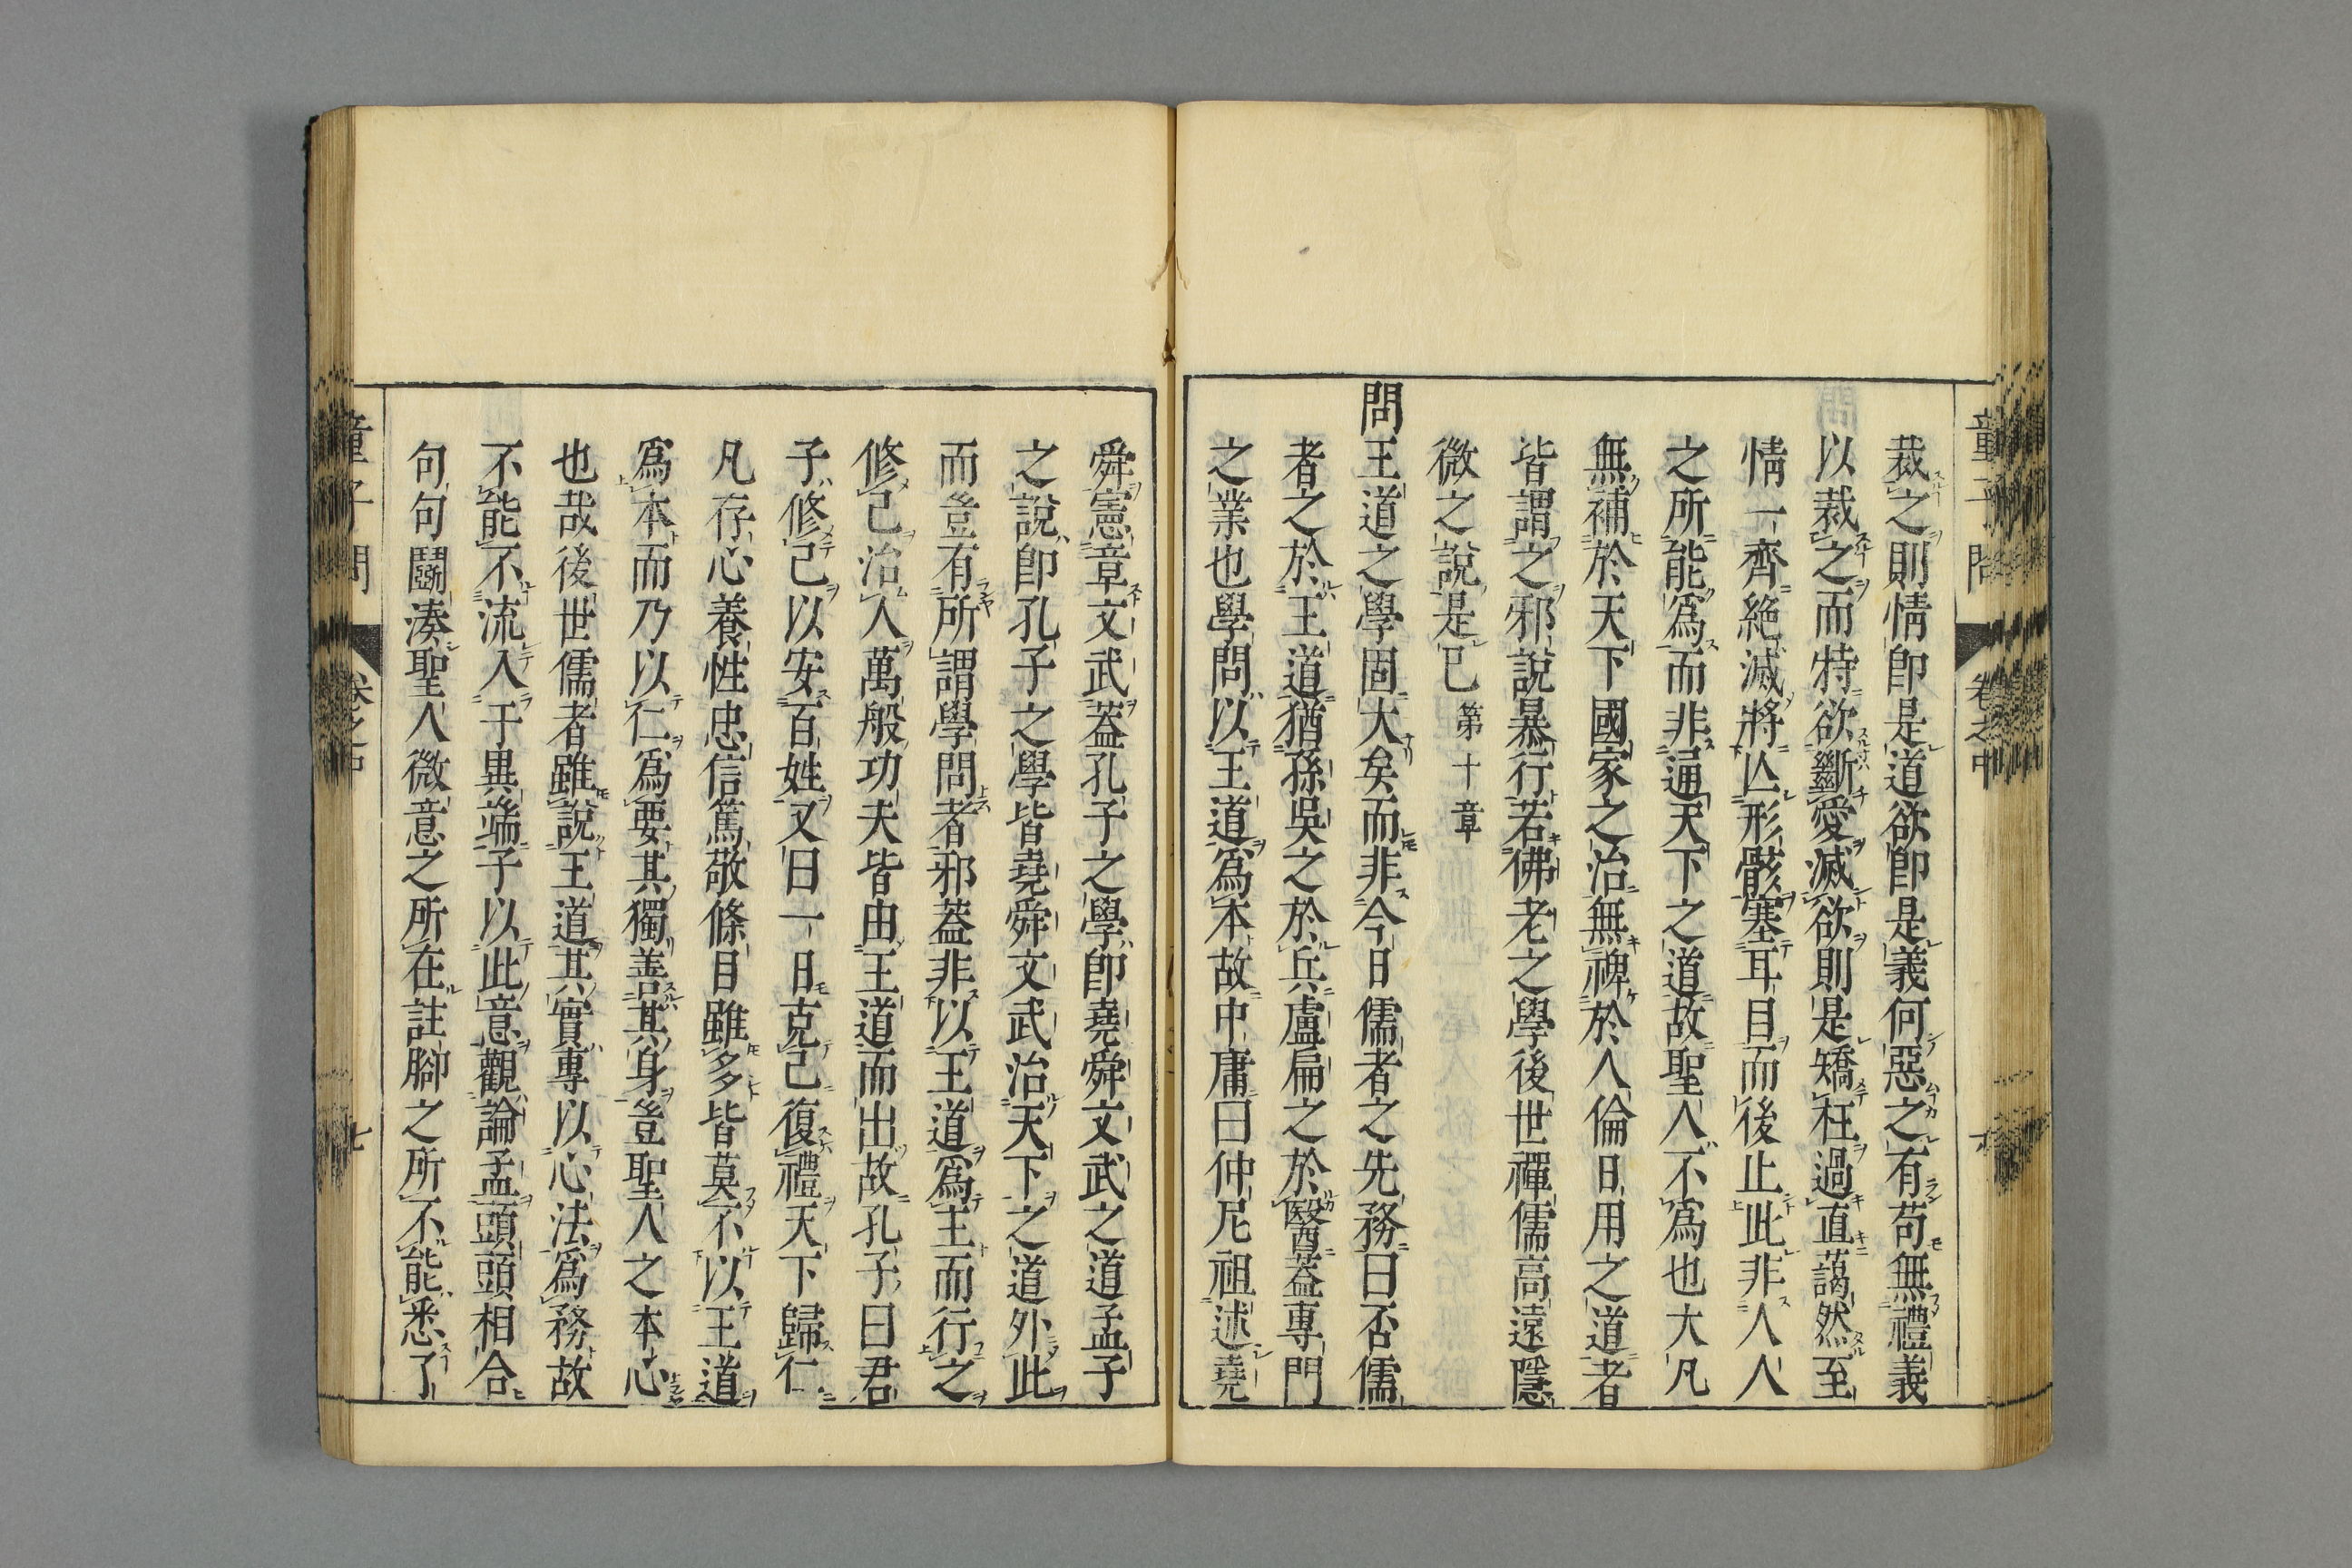 童子問 卷之中
裁之則情即是道欲即是義何惡之有苟無禮義
以裁之而特欲斷愛滅欲則是矯枉過直藹然至
情一齊絕滅將亾形骸塞耳目而後止此非人人
之所能為而非通天下之道故聖人不為也大凡
無補於天下國家之治無裨於人倫日用之道者
皆謂之邪說暴行若佛老之學後世禪儒高遠隱
微之說是已 第十章
問王道之學固大矣而非今日儒者之先務曰否儒
者之於王道猶孫吳之於兵盧扁之於醫蓋專門
之業也學問以王道爲本故中庸曰仲尼祖述堯
舜憲章文武蓋孔子之學即堯舜文武之道孟子
之說即孔子之學皆堯舜文武治天下之道外此
而豈有所謂學問者邪蓋非以王道爲主而行之
修己治人萬般功夫皆由王道而出故孔子曰君
子修己以安百姓又曰一日克己復禮天下歸仁
凡存心養性忠信篤敬條目雖多皆莫不以王道
爲本而乃以仁爲要其獨善其身豈聖人之本心
也哉後世儒者雖說王道其實專以心法爲務故
不能不流入于異端子以此意觀論孟頭頭相合
句句鬭湊聖人微意之所在註腳之所不能悉了
童子問 卷之中 七